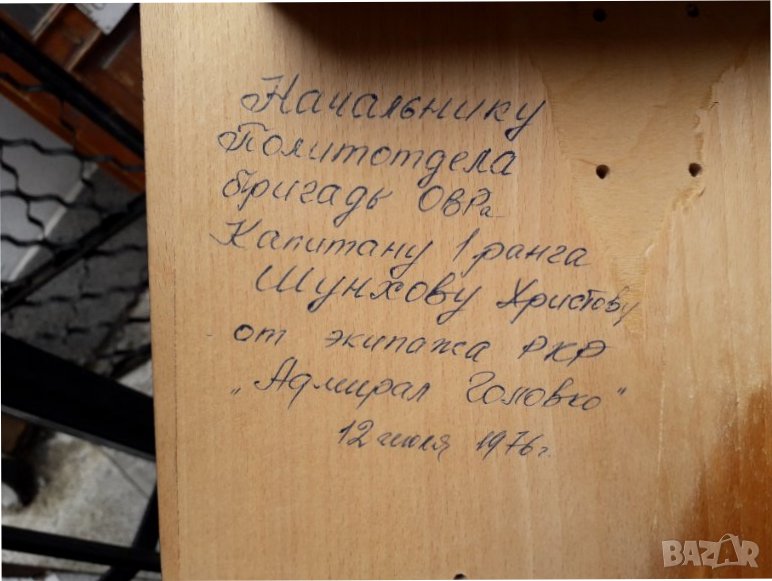 Начальнику
Политотдела
бригады ОВРа
Капитану 1 ранга
Шунхову Христову
от экипажа РКР
„Адмирал Головко"
12 июля 1976 г.
BAZAR